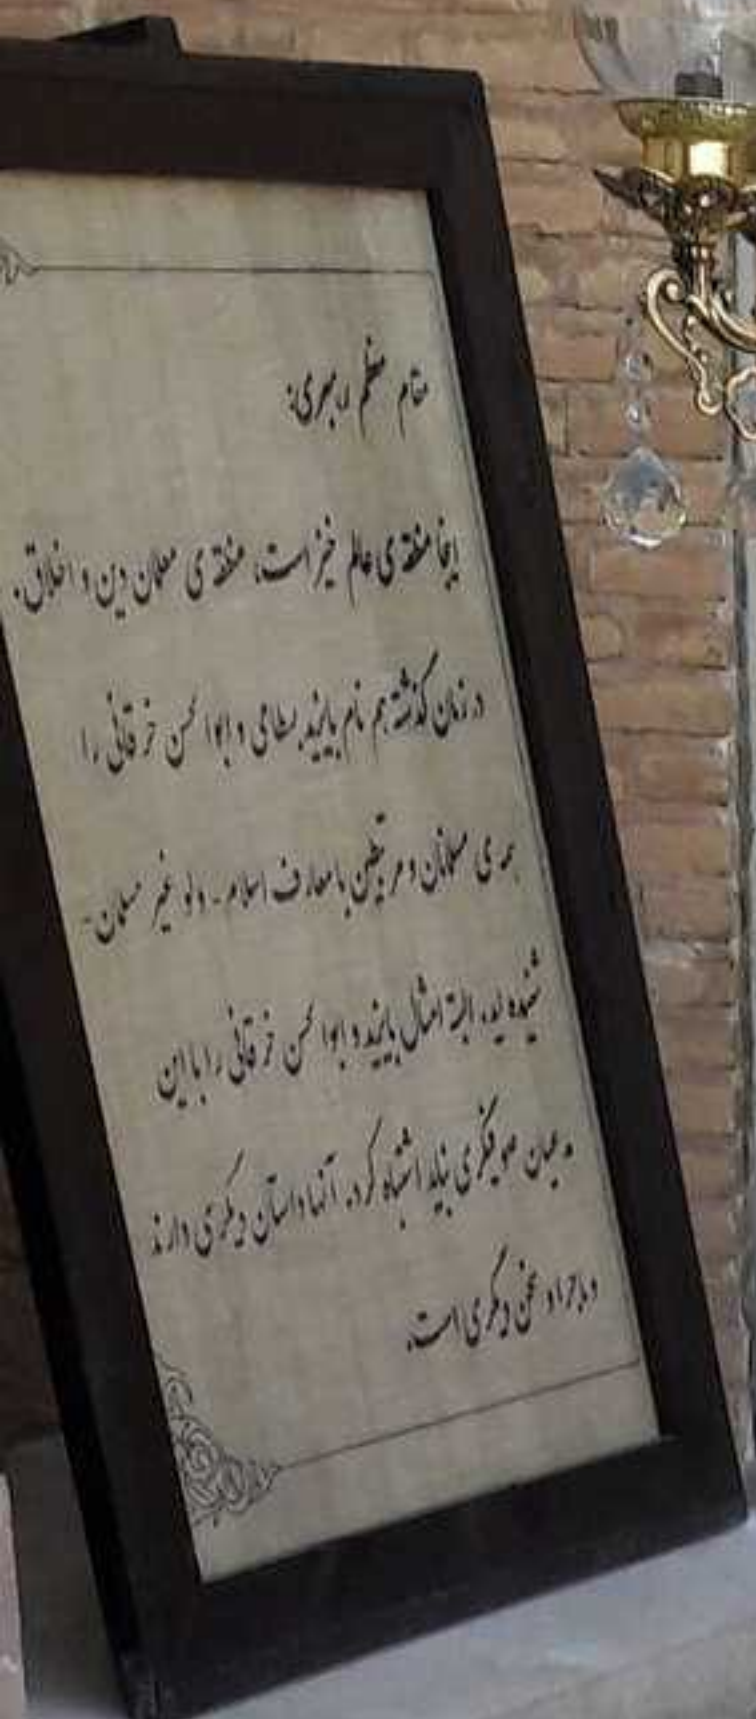 مقام معظم رهبری:
اینجا منطقه‌ی عالم خیز است، منطقه‌ی معلمان دین و اخلاق.
در زمان گذشته هم نام بایزید بسطامی و ابوالحسن خرقانی را
همه‌ی مسلمانان و مرتبطین با معارف اسلام - ولو غیر مسلمان -
شنیده‌اند، البته امثال بایزید و ابوالحسن خرقانی را با این
مدعیان صوفیگری نباید اشتباه کرد. آنها داستان دیگری دارند
و ماجرا و سخن دیگری است.